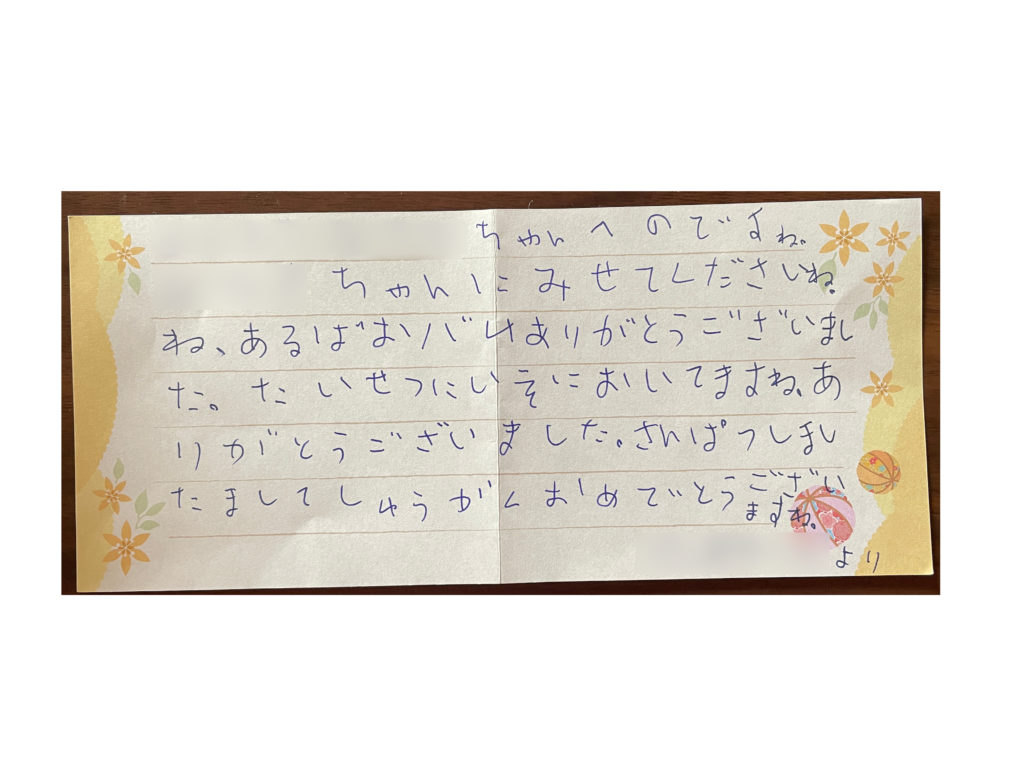 ちゃんへのですね。
ちゃんにみせてくださいね。
ね、あるばおバけありがとうございまし
た。たいせつにいえにおいてますね、あ
りがとうございました。さんぱつしまし
たましてしゅうがくおめでとうござい
ますね。
より